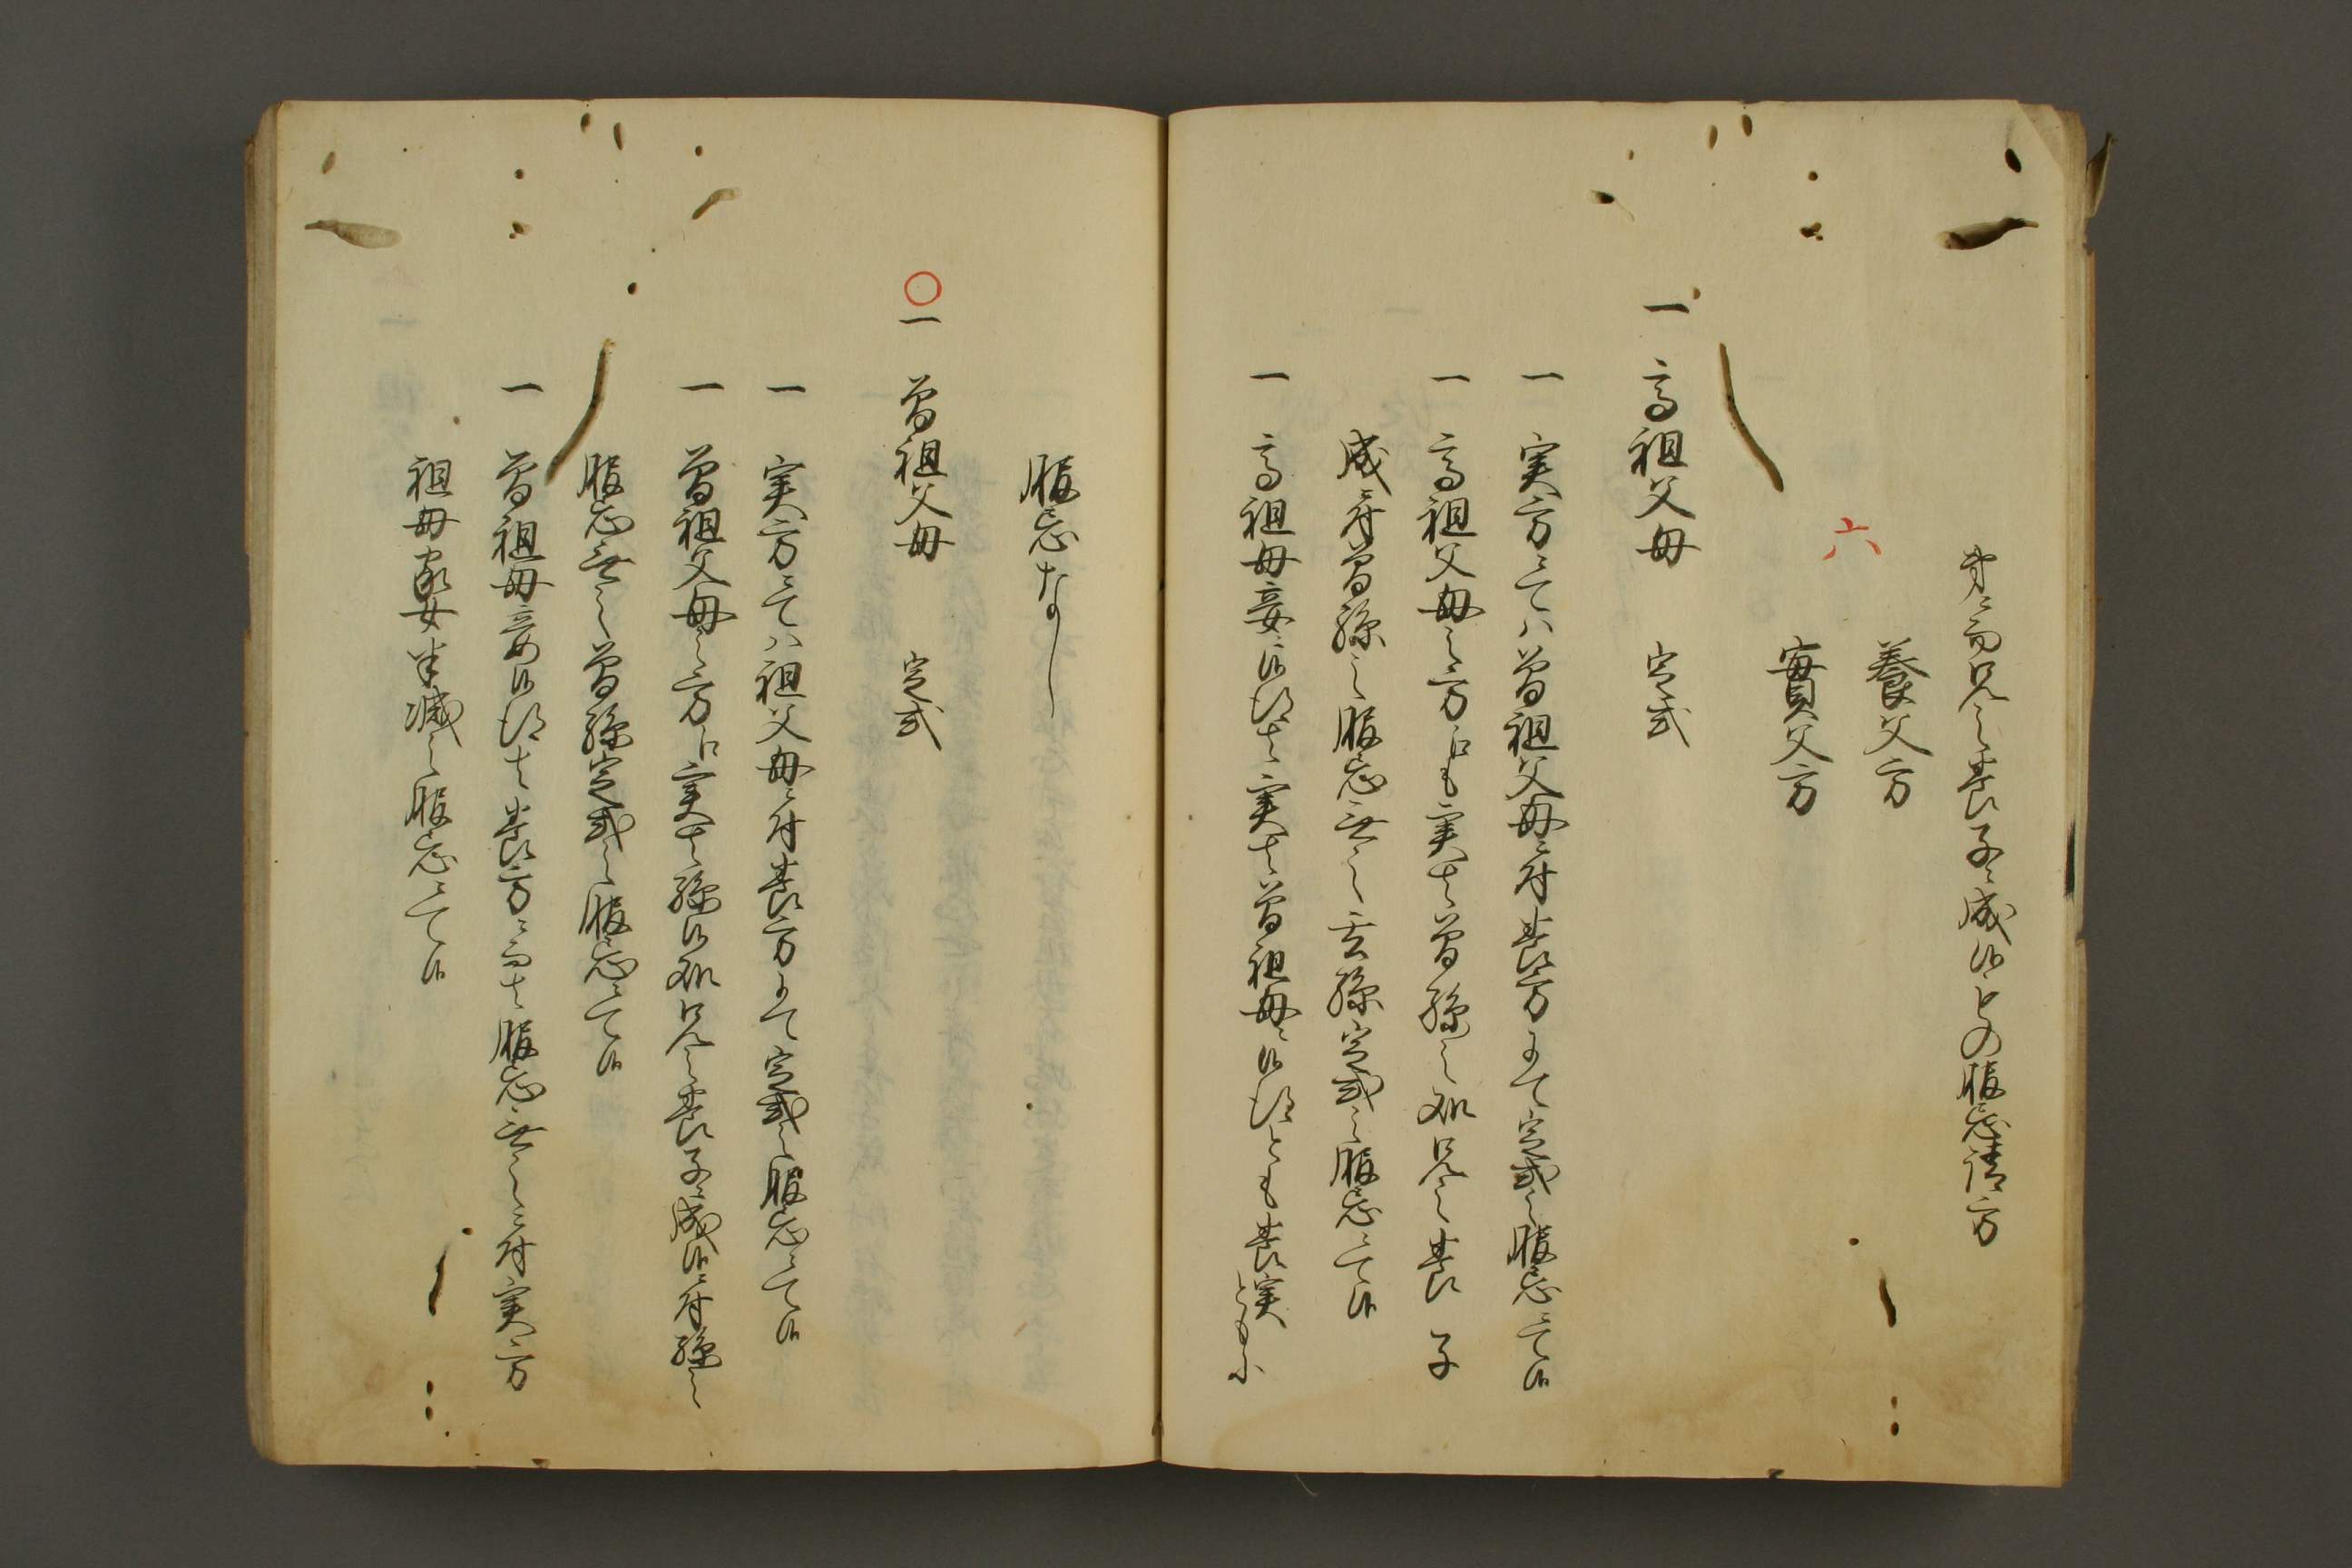 弟ニ而兄之養子ニ成候との服忌請方
養父方
六
實父方
一 高祖父母 定式
一 実方ニてハ曽祖父母ニ付養方よて定式之服忌ニて候
一 高祖父母之方占も実者曽孫之処兄之養子
成ニ付曽孫之服忌無之玄孫定式之服忌ニて候
一 高祖母妾ニ候得者実者曽祖母ニ候得とも養実ともニ
服忌なし
〇一 曽祖父母 定式
一 実方ニてハ祖父母ニ付養方よて定式之服忌ニて候
一 曽祖父母之方占実者孫候処兄之養子ニ成候ニ付孫之
服忌無之曽孫定式之服忌ニて候
一 曽祖母妾候得者養方ニ而者服忌無之ニ付実方
祖母家女半減之服忌ニて候